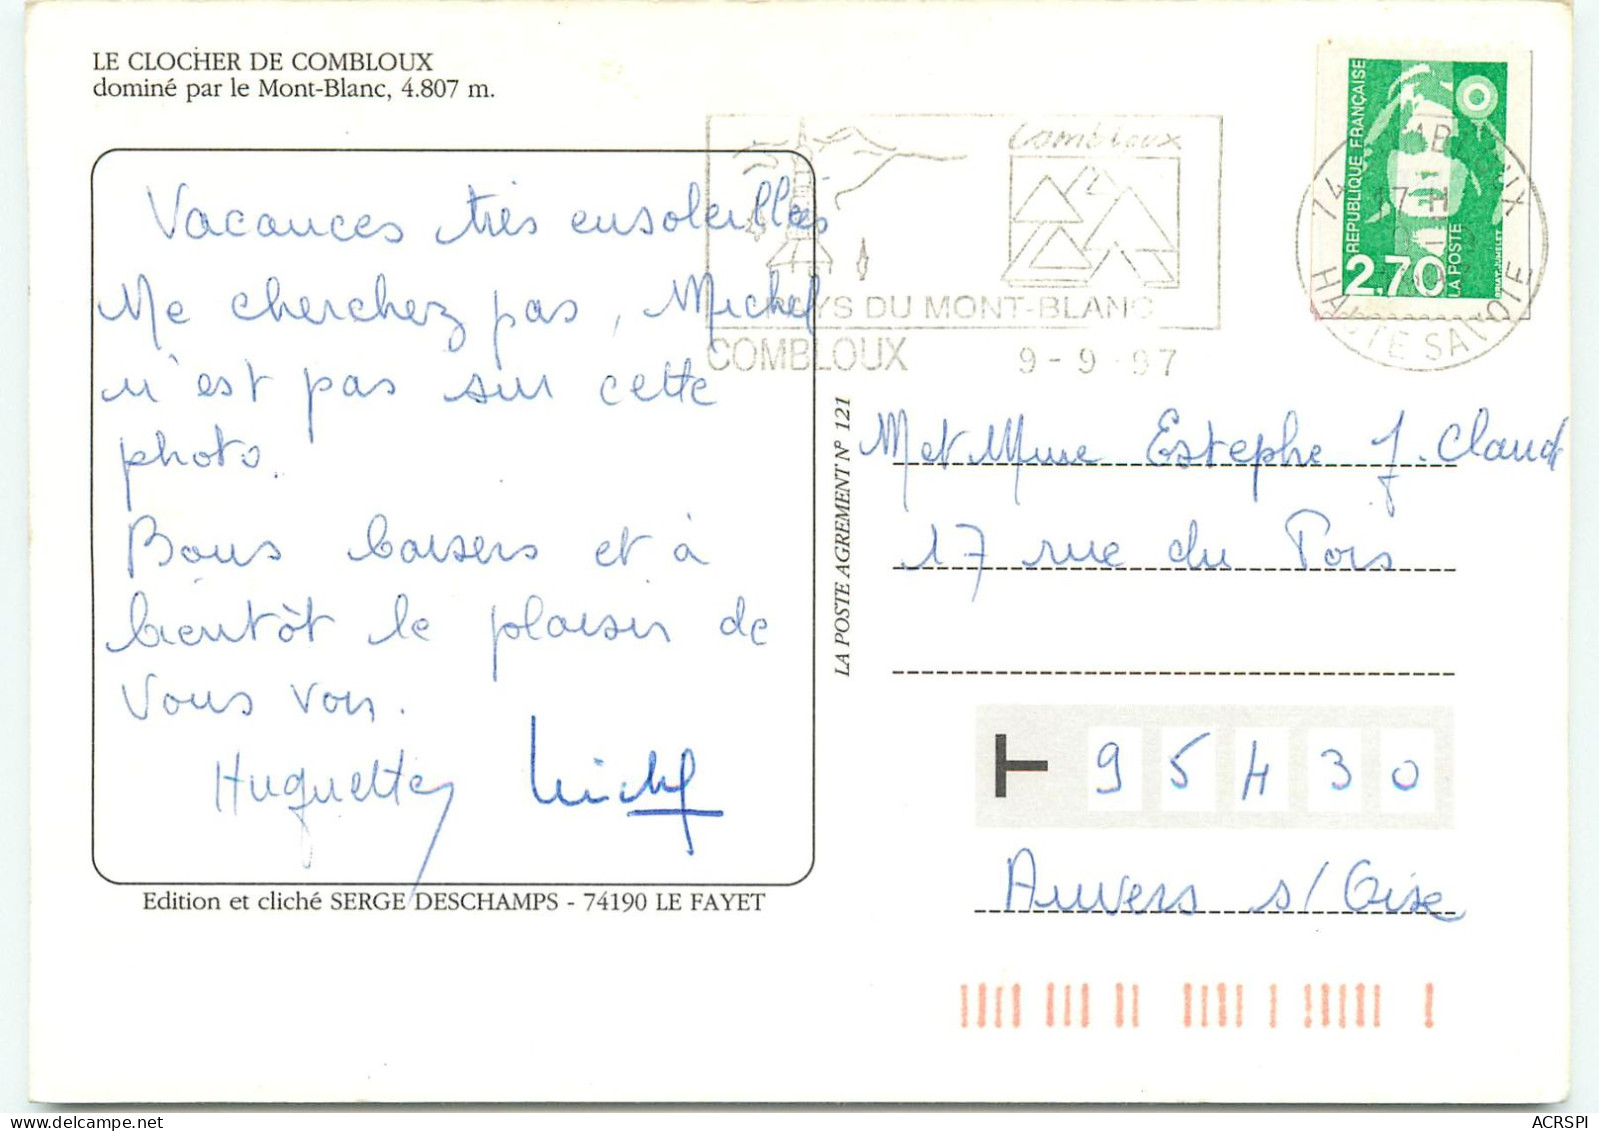 LE CLOCHER DE COMBLOUX
dominé par le Mont-Blanc, 4.807 m.
Vacances très ensoleillées
Me cherchez pas, Michel
n'est pas sur cette
photo.
Bons baisers et à
bientôt le plaisir de
vous voir.
Huguette Michel
Edition et cliché SERGE DESCHAMPS - 74190 LE FAYET
Combloux
PAYS DU MONT-BLANC
COMBLOUX 9-9-97
REPUBLIQUE FRANÇAISE
2,70
LA POSTE
74
17 H
HAUTE SAVOIE
LA POSTE AGREMENT Nº 121
M et Mme Estephe J. Claude
17 rue du Pois
T 95430
Auvers s/Oise
delcampe.net
ACRSPI